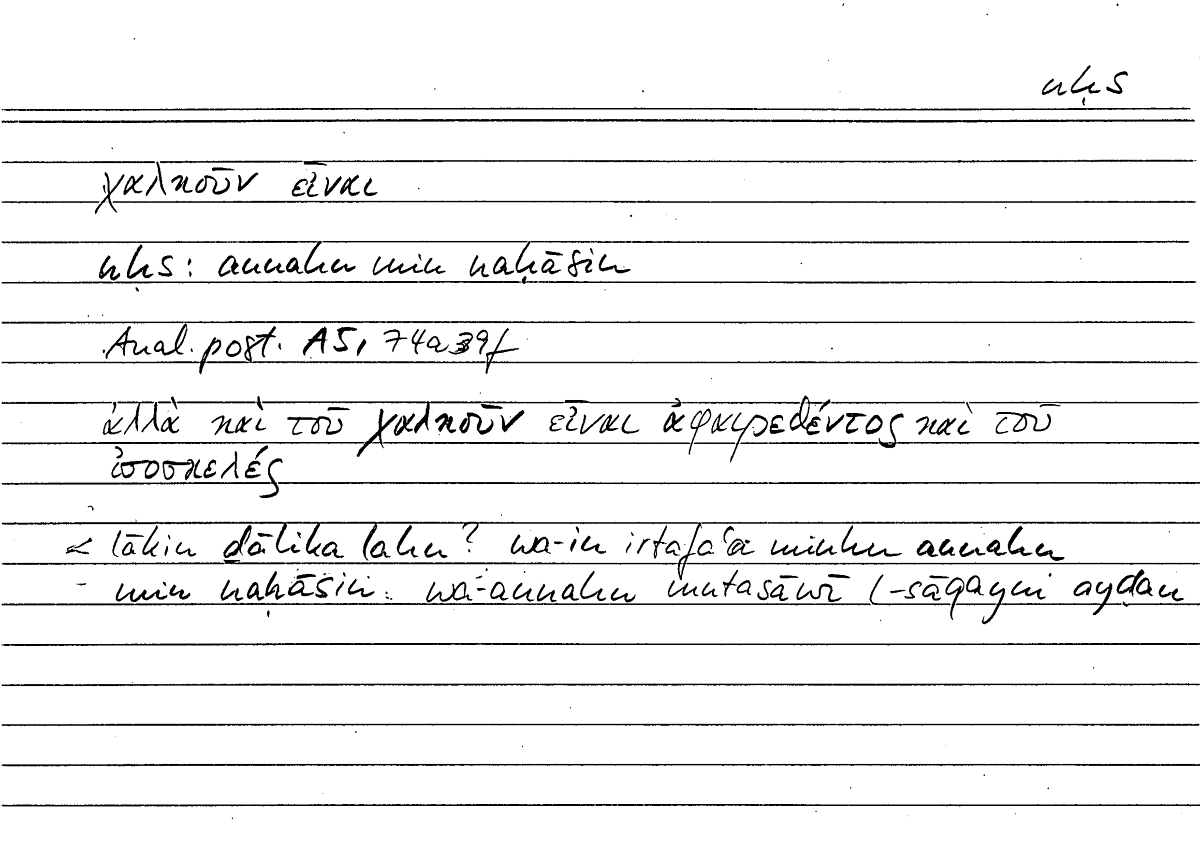 nḥs
χαλκοῦν εἶναι
nḥs: annahu min naḥāsin
Anal. post. A5, 74a39f
ἀλλὰ καὶ τοῦ χαλκοῦν εἶναι ἀφαιρεθέντος καὶ τοῦ
ἰσοσκελές
< lākin ḏālika lahu? wa-in irtafaʿa minhu annahu
- min naḥāsin. wa-annahu mutasāwī l-sāqayni ayḍan